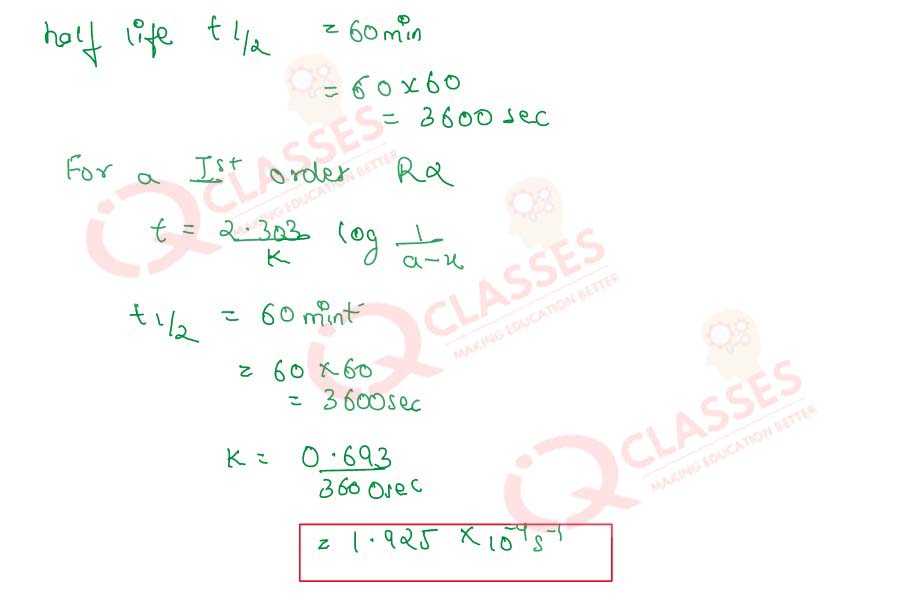 half life t 1/2 = 60 min
= 60 × 60
= 3600 sec
For a Ist order Rα
t = 2.303/K log 1/a-x
t 1/2 = 60 mint
= 60 × 60
= 3600 sec
K = 0.693/3600 sec
= 1.925 × 10⁻⁴ s⁻¹
IQ CLASSES
MAKING EDUCATION BETTER
IQ CLASSES
MAKING EDUCATION BETTER
IQ CLASSES
MAKING EDUCATION BETTER